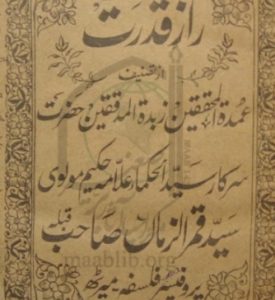 راز قدرت
از تصنیف
عمدة المحققین زبدة المدققین حضرت
سرکار سید الحکما علامہ حکیم مولوی
سید قمر الزماں صاحب قبلہ
پروفیسر فلسفہ میرٹھ
maablib.org